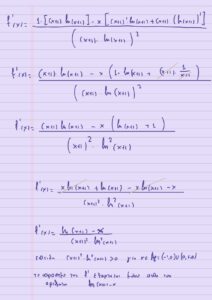 f'(x) = 1·[(x+1)·ln(x+1)] - x[(x+1)'ln(x+1) + (x+1)(ln(x+1))'] / ((x+1)·ln(x+1))²
f'(x) = (x+1)·ln(x+1) - x(1·ln(x+1) + (x+1)·1/(x+1)) / ((x+1)·ln(x+1))²
f'(x) = (x+1)ln(x+1) - x(ln(x+1) + 1) / (x+1)²·ln²(x+1)
f'(x) = x ln(x+1) + ln(x+1) - x ln(x+1) - x / (x+1)²·ln²(x+1)
f'(x) = ln(x+1) - x / (x+1)²·ln²(x+1)
(x+1)²·ln²(x+1) > 0 για
το πρόσημο της f' εξαρτάται από το
ln(x+1)-x